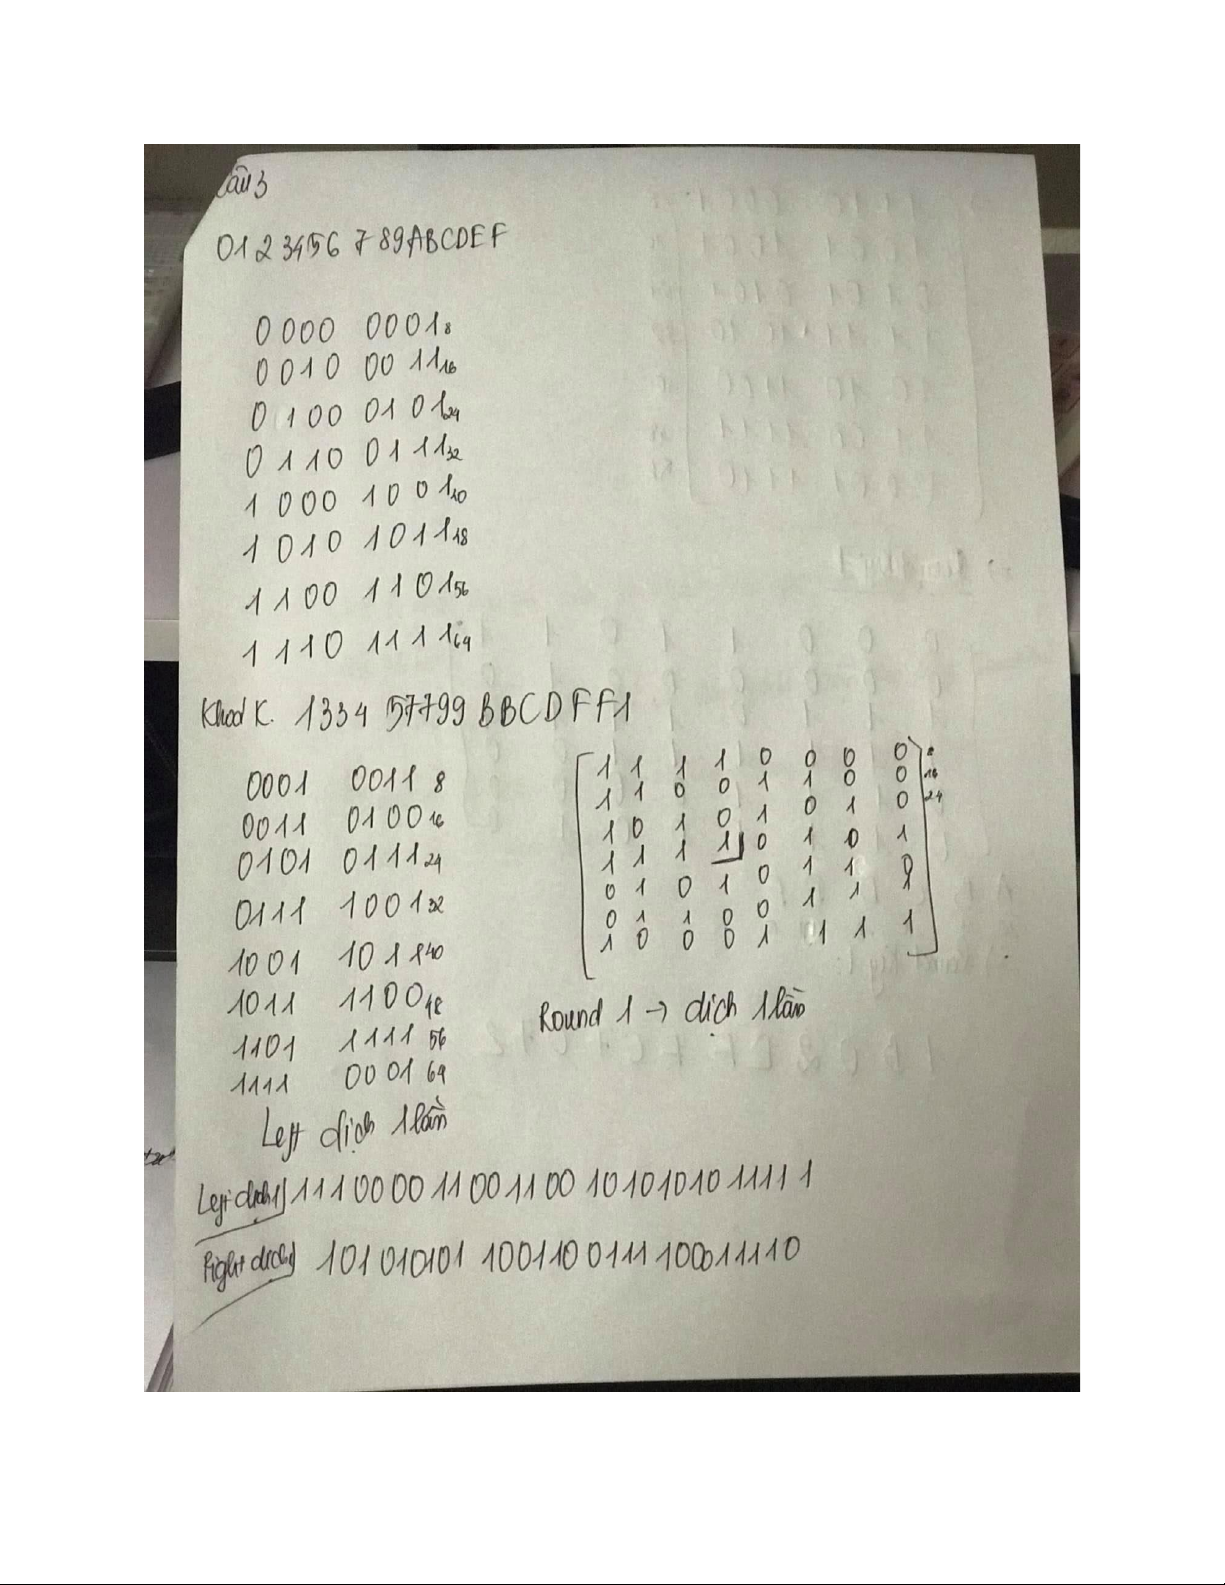 Câu 3
0123456789ABCDEF
0000 0001 8
0010 0011 16
0100 0101 24
0110 0111 32
1000 1001 40
1010 1011 48
1100 1101 56
1110 1111 64
Khoá K. 133457799BBCDFF1
0001 0011 8
0011 0100 16
0101 0111 24
0111 1001 32
1001 1011 40
1011 1100 48
1101 1111 56
1111 0001 64
1 1 1 1 0 0 0 0 8
1 1 0 0 1 1 0 0 16
1 0 1 0 1 0 1 0 24
1 1 1 1 0 1 0 1
0 1 0 1 0 1 1 0
0 1 1 0 0 1 1 1
1 0 0 0 1 1 1 1
Round 1 → dịch 1 lần
Left dịch 1 lần
Left dịch 1 1110000110011001010101011111
Right dịch 1010101011001100111100011110